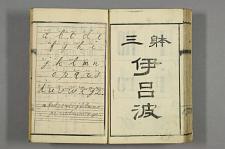 三躰
伊呂波
a b c d e
f g h i
j k l m n
o p q r s t
u v w x y z